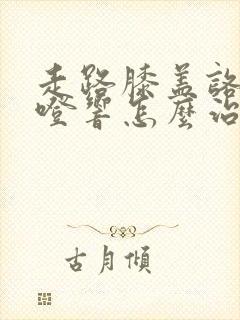 走路膝盖咯
噔響怎麼治
古月傾